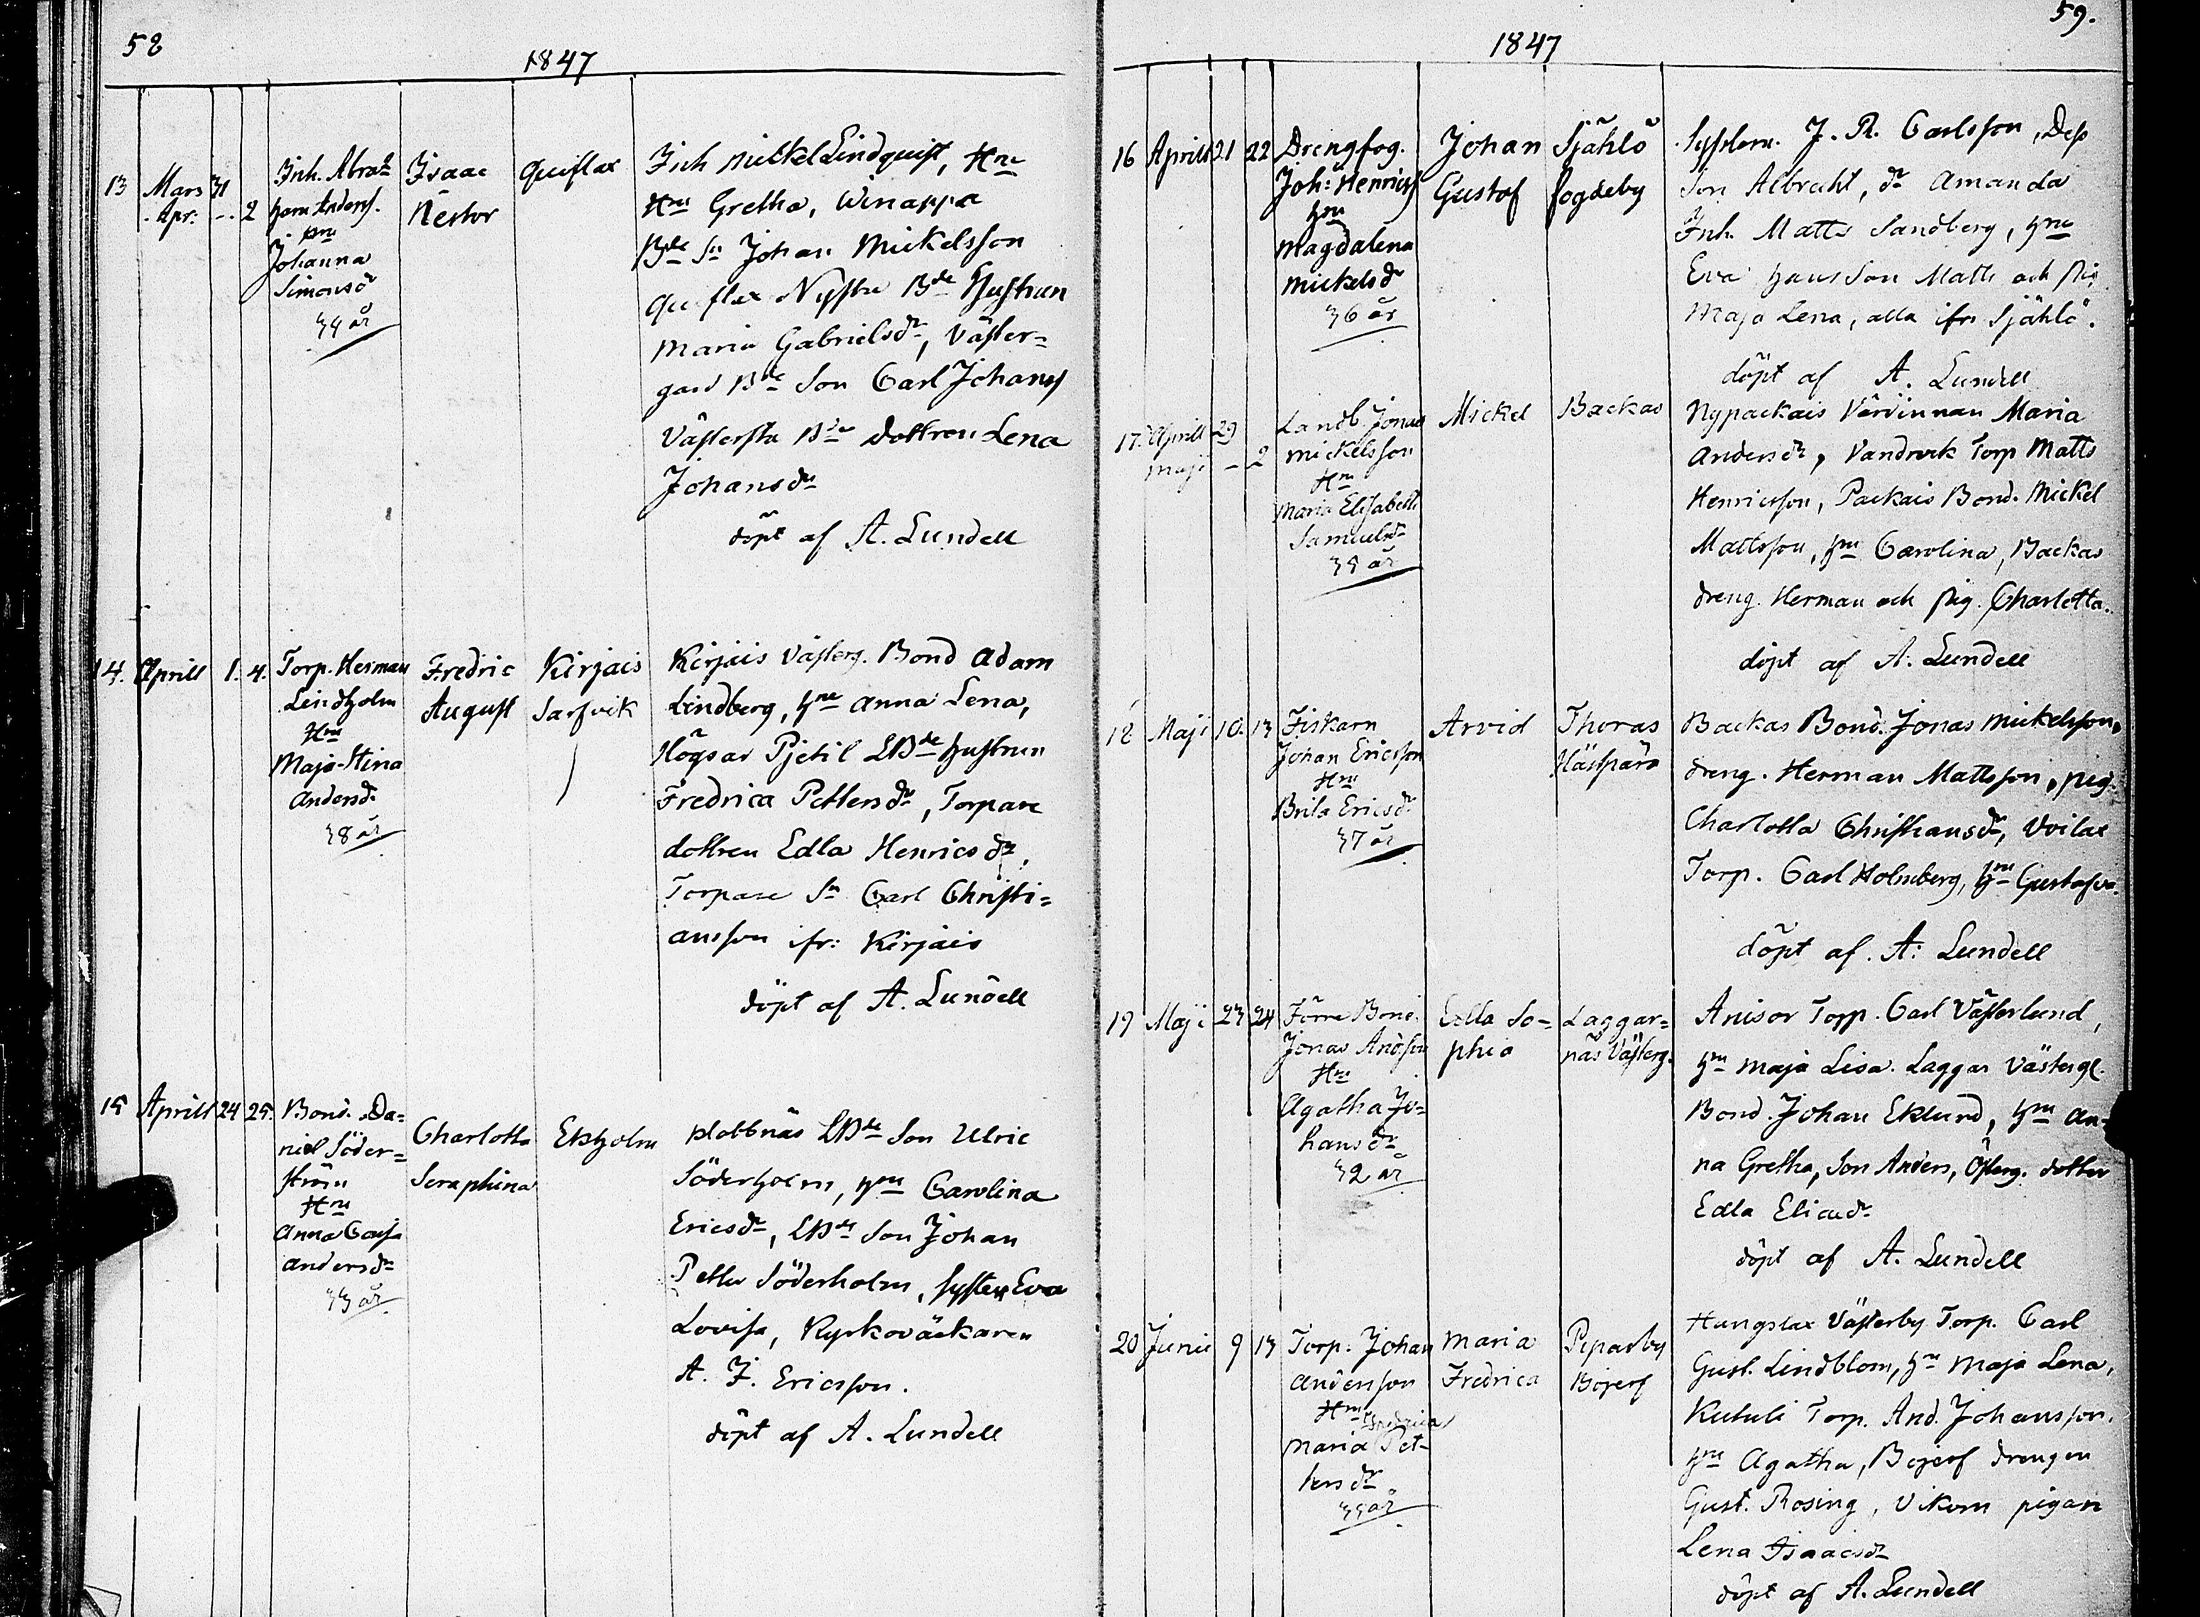 58
1847
13 Mars 31
Apr: - 2
Inh. Abra=
ham Anderss.
Hru
Johanna
Simonsdr
34 år
Isaac
Nestor
Quiflax
Inh Mickel Lindquist, Hru
Hru Gretha, Winappa
Bde Sn Johan Mickelsson
Quiflax Nystu Bde Hustrun
Maria Gabrielsdr, Väster=
gard Bde Son Carl Johanss
Västerstu Bde dottren Lena
Johansdr
döpt af A. Lundell
14. Aprill 1. 4.
Torp. Herman
Lindholm
Hru
Maja Stina
Andersdr
38 år
Fredric
August
Kirjais
Sarfvik
Kirjais Västerg. Bond Adam
Lindberg, hru Anna Lena,
Högsar Pjetil LBde hustrun
Fredrica Pettersdr, Torpare
dottren Edla Henricsdr,
Torpare Sn Carl Christi=
ansson ifr: Kirjais
döpt af A. Lundell
15 Aprill 24 25.
Bond. Da=
niel Söder=
ström
Hru
Anna Cajsa
Andersdr
33 år
Charlotta
Seraphina
Ekholm
Klobbnäs LBde Son Ulric
Söderholm, hru Carolina
Ericsdr, LBds Son Johan
Petter Söderholm, Syster Eva
Lovisa, Kyrkoväckaren
A. F. Ericsson.
döpt af A. Lundell
59.
1847
16 Aprill 21 22
Drengfog.
Joh: Henrics
hru
Magdalena
Mickelsdr
36 år
Johan
Gustof
Själlö
fogdeby
J. R. Carlsson, Dess
Son Albrecht, dr Amanda
Inh. Matts Sandberg, hru
Eva hans Son Matts och pig
Maja Lena, alla ifr Själlö.
döpt af A. Lundell
17. Aprill 29
Maji - 2
Landb. Jonas
Mickelsson
Hru
Maria Elisabeth
Samuelsdr
34 år
Mickel
Backas
Nypackais Värdinnan Maria
Andersdr, Vandrock Torp Matts
Henricsson, Packais Bond. Mickel
Mattsson, hru Carolina, Backas
dreng. Herman och pig. Charlotta.
döpt af A: Lundell
18 Maji 10. 13
Fiskarn
Johan Ericsson
Hru
Brita Ericsdr
37 år
Arvid
Thoras
Hästpärs
Backas Bond. Jonas Mickelsson,
dreng. Herman Mattsson, pig.
Charlotta Christiansdr, Voilax
Torp. Carl Holmberg, hru Gustafva.
döpt af. A: Lundell
19 Maji 23 24
Förre Bond.
Jonas Andsson
Hru
Agatha Jo=
hansdr
32 år
Edla So=
phia
Laggar=
näs Västerg.
Anisor Torp. Carl Västerlund,
hru Maja Lisa. Laggar Västergl.
Bond. Johan Eklund, hru An=
na Gretha, Son Anders, Österg. dotter
Edla Eliædr
döpt af A. Lundell
20 Junii 9 13
Torp. Johan
Andersson
Hru Fredrica
Maria Pet=
tersdr
35 år
Maria
Fredrica
Piparby
Böjerf
Hungslax Västerby Torp. Carl
Gust. Lindblom, hru Maja Lena,
Kuluti Torp. And. Johansson,
hru Agatha, Böjerf drengen
Gust. Rosing, Vikom pigan
Lena Isaacsdr
döpt af A. Lundell